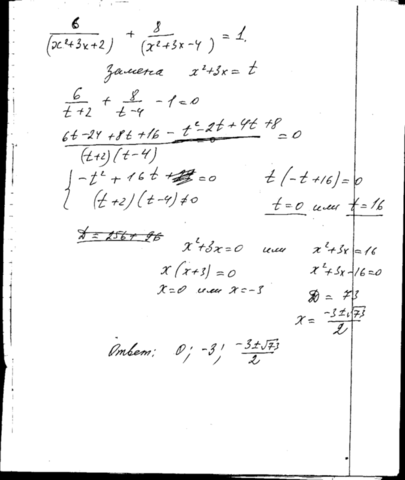 6/(x²+3x+2) + 8/(x²+3x-4) = 1.
Замена x²+3x = t
6/(t+2) + 8/(t-4) - 1 = 0
(6t-24+8t+16-t²-2t+4t+8)/((t+2)(t-4)) = 0
{ -t²+16t+ = 0 t(-t+16)=0
(t+2)(t-4)≠0 t=0 или t=16
D = 256+96
x²+3x=0 или x²+3x=16
x(x+3)=0 x²+3x-16=0
x=0 или x=-3 D = 73
x = (-3±√73)/2
Ответ: 0; -3; (-3±√73)/2